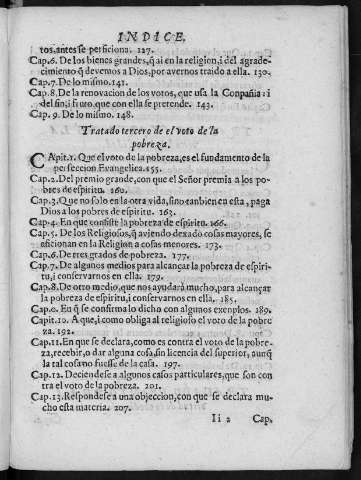 INDICE.
tos, antes se perficiona. 127.
Cap.6. De los bienes grandes, q̃ ai en la religion, i del agrade-
cimiento q̃ devemos a Dios, por avernos traido a ella. 130.
Cap.7. De lo mismo. 141.
Cap.8. De la renovacion de los votos, que usa la Conpañia: i
del fin, i fruto, que con ella se pretende. 143.
Cap. 9. De lo mismo. 148.
Tratado tercero de el voto de la
pobreza.
CApit.1. Que el voto de la pobreza, es el fundamento de la
perfeccion Evangelica. 155.
Cap.2. Del premio grande, con que el Señor premia a los po-
bres de espiritu. 160.
Cap.3. Que no solo en la otra vida, sino tanbien en esta, paga
Dios a los pobres de espiritu. 163.
Cap.4. En que consiste la pobreza de espiritu. 166.
Cap.5. De los Religiosos, q̃ aviendo dexado cosas mayores, se
aficionan en la Religion a cosas menores. 173.
Cap.6. De tres grados de pobreza. 177.
Cap.7. De algunos medios para alcançar la pobreza de espiri-
tu, i conservarnos en ella. 179.
Cap.8. De otro medio, que nos ayudará mucho, para alcançar
la pobreza de espiritu, i conservarnos en ella. 185.
Cap.9. En q̃ se confirma lo dicho con algunos exenplos. 189.
Capit.10. A que, i como obliga al religioso el voto de la pobre
za. 192.
Cap.11. En que se declara, como es contra el voto de la pobre-
za, recebir, o dar alguna cosa, sin licencia del superior, aunq̃
la tal cosa no fuesse de la casa. 197.
Cap.12. Deciendese a algunos casos particulares, que son con
tra el voto de la pobreza. 201.
Cap.13. Respondese a una objeccion, con que se declara mu-
cho esta materia. 207.
Ii 2 Cap.